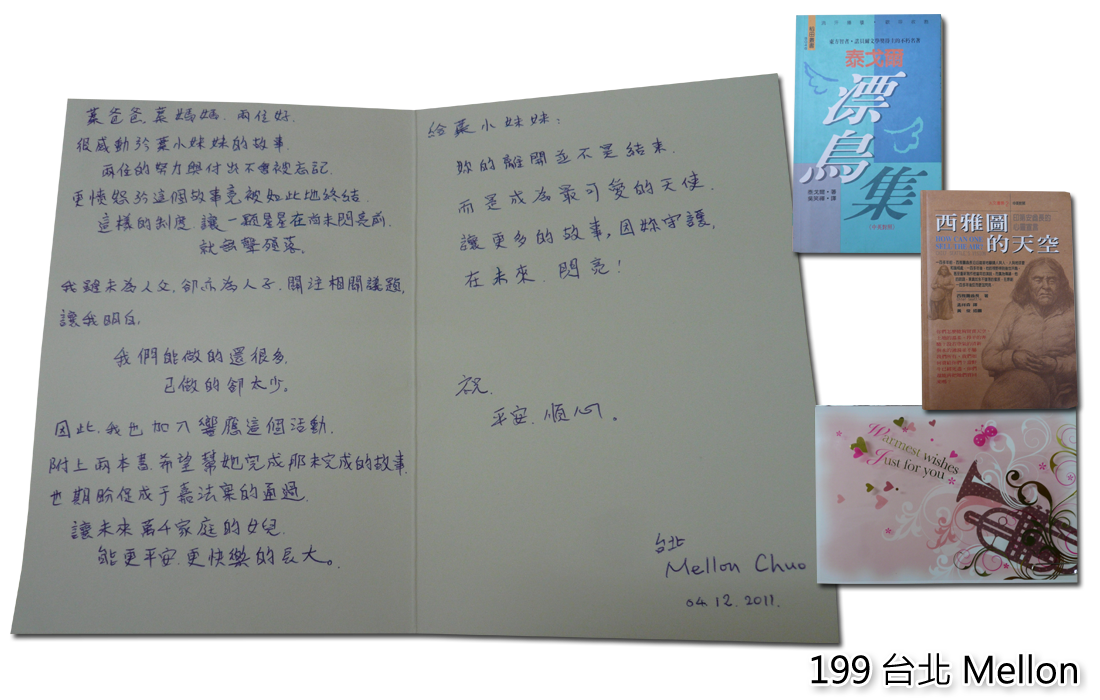 葉爸爸、葉媽媽、兩位好.
很感動於葉小妹妹的故事.
兩位的努力與付出不會被忘記.
更憤怒於這個故事竟被如此地終結.
這樣的制度.讓一顆星星在尚未閃亮前.
就無聲殞落。
我雖未為人父,卻亦為人子,關注相關議題,
讓我明白,
我們能做的還很多,
已做的卻太少。
因此,我也加入響應這個活動.
附上兩本書,希望幫她完成那未完成的故事,
也期盼促成于嘉法案的通過.
讓未來萬千家庭的女兒.
能更平安.更快樂的長大。
給葉小妹妹:
妳的離開並不是結束.
而是成為最可愛的天使.
讓更多的故事,因妳守護,
在未來.閃亮!
祝.
平安.順心。
台北
Mellon Chuo
04.12.2011.
泰戈爾
漂鳥集
泰戈爾・著
(中英對照)
西雅圖的天空
HOW CAN ONE SELL THE AIR?
Warmest wishes
Just for you
199 台北 Mellon